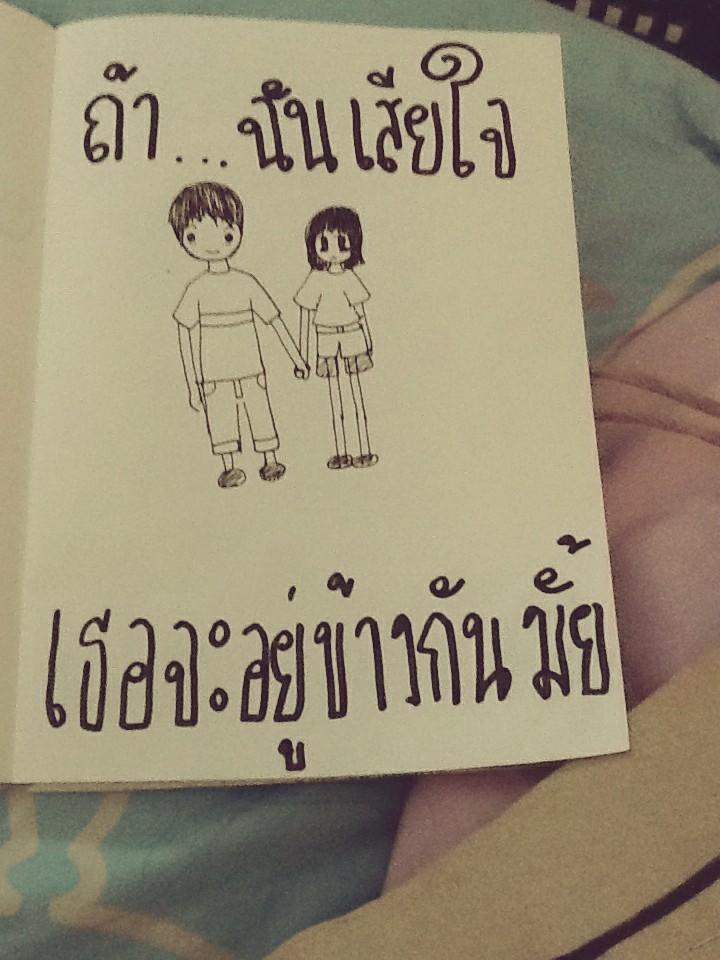 ถ้า...ฉันเสียใจ
เธอจะอยู่ข้างกันมั้ย